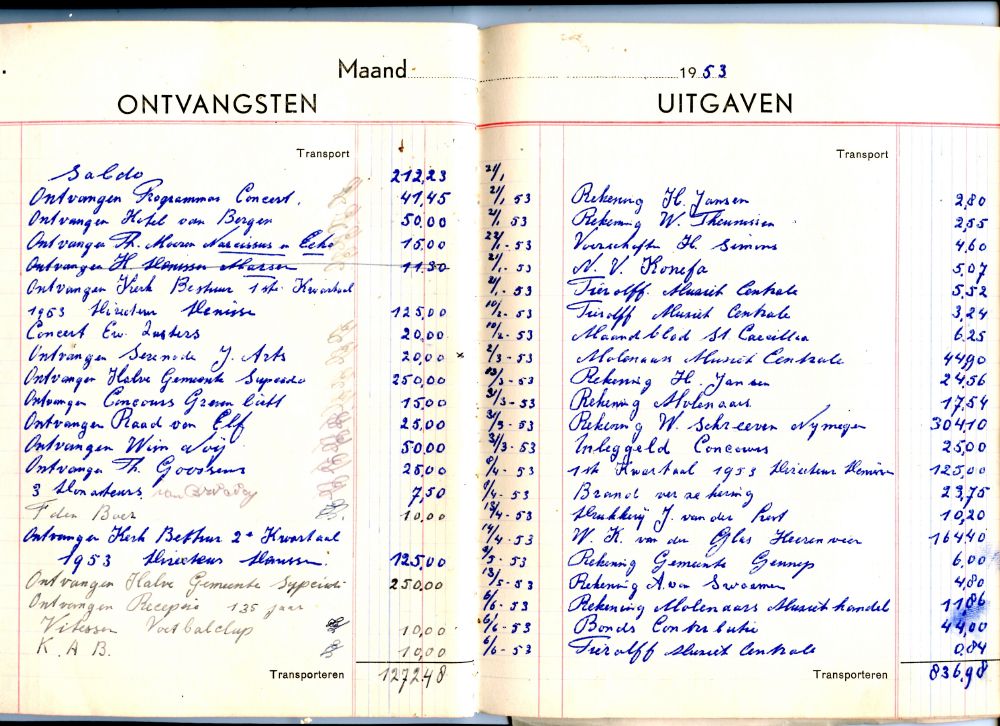 Maand
ONTVANGSTEN
Transport
Saldo 212,23
Ontvangen Programmas Concert. 41,45
Ontvangen Hotel van Bergen 50.00
Ontvangen Th. Mooren Narcissus en Echo 15.00
Ontvangen H. 11.30
Ontvangen Kerk Bestuur 1ste Kwartaal
1953 Directeur 125,00
Concert Ew. Zusters 20,00
Ontvangen Serenade J. Arts 20,00 x
Ontvangen Halve Gemeente 250,00
Ontvangen Concours 15,00
Ontvangen Raad van Elf 25,00
Ontvangen Wim 50.00
Ontvangen Th. Goossens 25,00
3 Donateurs 7,50
F den Boer 10,00
Ontvangen Kerk Bestuur 2e Kwartaal
1953 Directeur 125,00
Ontvangen Halve Gemeente 250,00
Ontvangen Receptie 135 jaar
Vitesse Voetbalclup 10,00
K. A B. 10,00
Transporteren 1272,48
1953
UITGAVEN
Transport
21/1
21/1 53 Rekening H. Jansen 2,80
21/1 53 Rekening W. Theunissen 2,55
22/1 - 53 Voorschoten H. Simons 4,60
21/1 - 53 N. V. Konefa 5,07
21/1 - 53 Tierolff. Muziek Centrale 5,52
10/2 - 53 Tierolff Muziek Centrale 3,24
10/2 - 53 Maandblad St. Caecilia 6.25
2/3 - 53 Molenaars Muziek Centrale 44,90
13/3 - 53 Rekening H. Jansen 24,56
31/3 - 53 Rekening Molenaars 17,54
31/3 - 53 Rekening W. Schreeven Nymegen 304,10
31/3 - 53 Inleggeld Concours 25,00
/4 - 53 1ste Kwartaal 1953 Directeur 125,00
/4 - 53 Brand verzekering 23,75
13/4 - 53 Drukkerij J. van der 10,20
14/4 - 53 W. K. van der Glas Heerenveen 164,40
/5 - 53 Rekening Gemeente Gennep 6,00
13/5 - 53 Rekening A. van 4,80
6/6 - 53 Rekening Molenaars Muziekhandel 11,86
6/6 - 53 Bonds Contributie 44,00
6/6 - 53 Tierolff Muziek Centrale 0,84
Transporteren 836,98